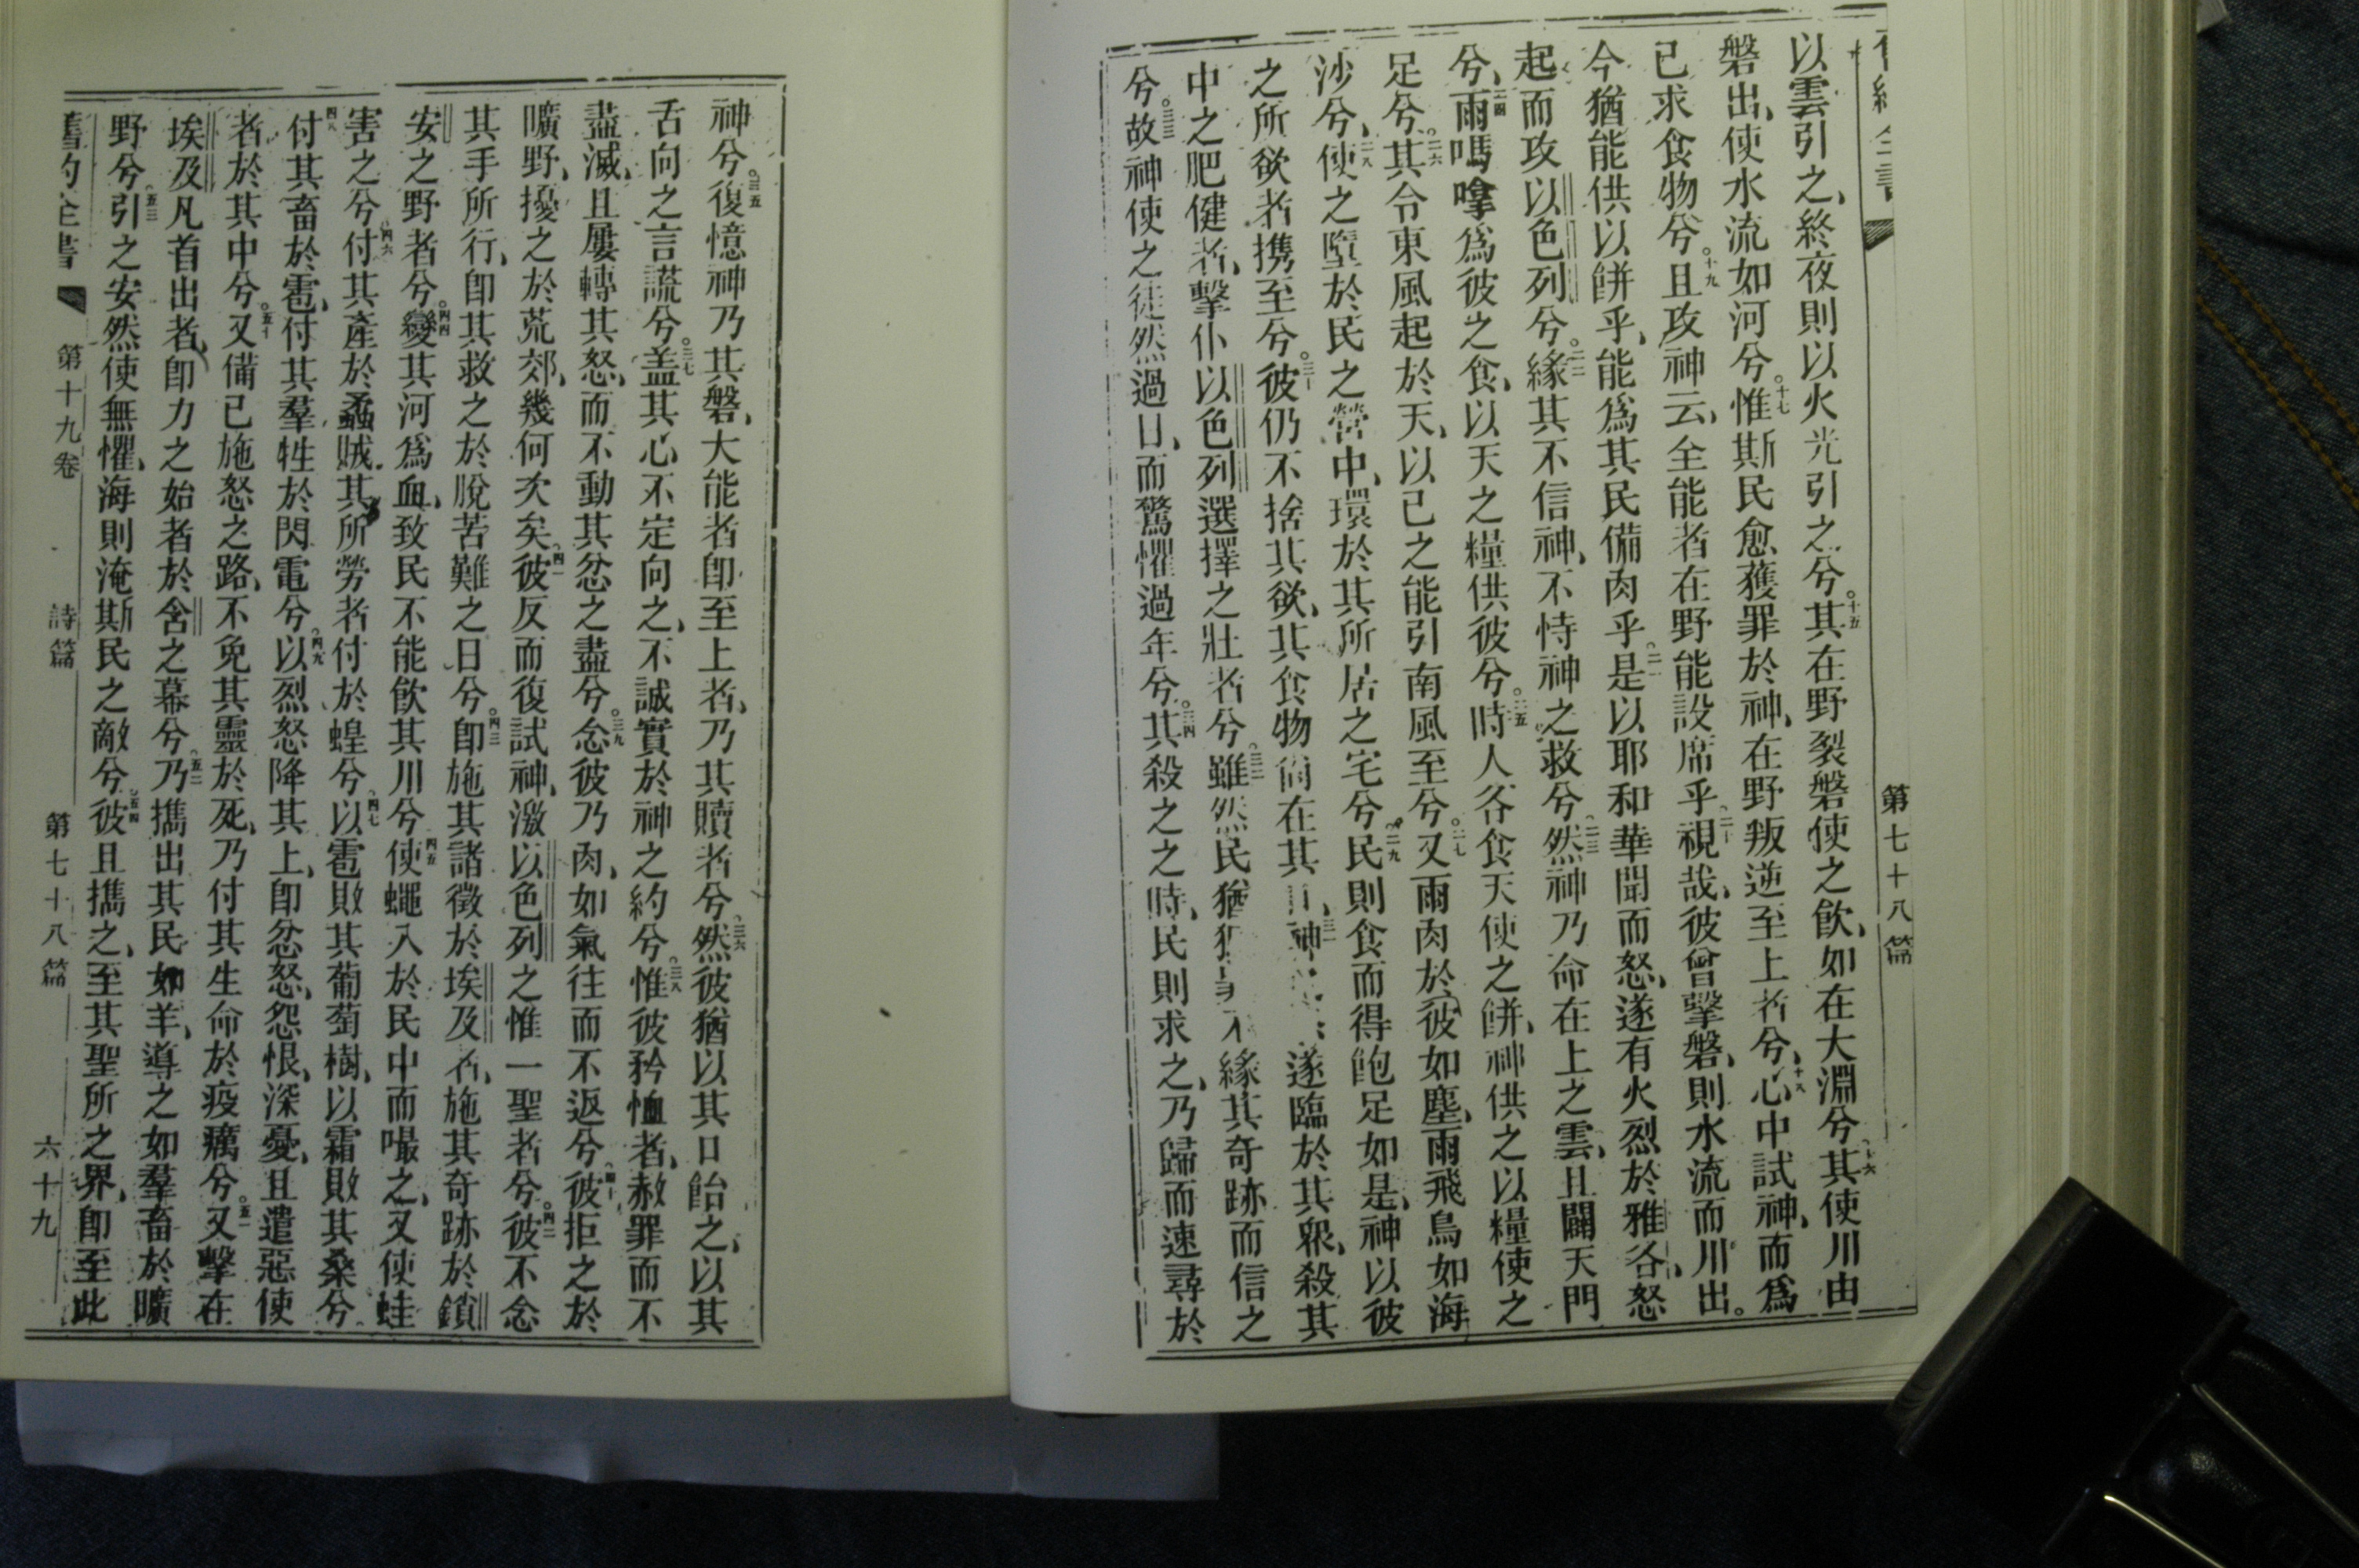 第七十八篇
以雲引之、終夜則以火光引之兮。十五其在野裂磐使之飲、如在大淵兮十六其使川由
磐出、使水流如河兮。十七惟斯民愈獲罪於神、在野叛逆至上者兮、十八心中試神、而爲
已求食物兮。十九且攻神云、全能者在野能設席乎。二十視哉、彼曾擊磐、則水流而川出。
今猶能供以餅乎、能爲其民備肉乎。二一是以耶和華聞而怒、遂有火烈於雅各、怒
起而攻以色列兮。二二緣其不信神、不恃神之救兮。二三然神乃命在上之雲、且闢天門
兮、二四雨嗎嗱爲彼之食、以天之糧供彼兮。二五時人各食天使之餅、神供之以糧使之
足兮。二六其令東風起於天、以已之能引南風至兮。二七又雨肉於彼如塵、雨飛鳥如海
沙兮、二八使之墮於民之營中、環於其所居之宅兮。二九民則食而得飽足如是、神以彼
之所欲者携至兮。三十彼仍不捨其欲、其食物尙在其口、三一神遂臨於其衆、殺其
中之肥健者、擊仆以色列選擇之壯者兮。三二雖然民猶不緣其奇跡而信之
兮。三三故神使之徒然過日、而驚懼過年兮。三四其殺之之時、民則求之、乃歸而速尋於
神兮。三五復憶神乃其磐、大能者卽至上者、乃其贖者兮。三六然彼猶以其口飴之、以其
舌向之言謊兮。三七盖其心不定向之、不誠實於神之約兮。三八惟彼矜恤者、赦罪而不
盡滅、且屢轉其怒、而不動其忿之盡兮。三九念彼乃肉、如氣往而不返兮。四十彼拒之於
曠野、擾之於荒郊、幾何次矣。四一彼反而復試神、激以色列之惟一聖者兮。四二彼不念
其手所行、卽其救之於脫苦難之日兮。四三卽施其諸徵於埃及者、施其奇跡於鎖
安之野者兮。四四變其河爲血、致民不能飲其川兮。四五使蠅入於民中而嘬之、又使蛙
害之兮。四六付其產於蟊賊、其所勞者付於蝗兮。四七以雹敗其葡萄樹、以霜敗其桑兮。
四八付其畜於雹、付其羣牲於閃電兮。四九以烈怒降其上、卽忿怒、怨恨、深憂、且遣惡使
者於其中兮。五十又備已施怒之路、不免其靈於死、乃付其生命於疫癘兮。五一又擊在
埃及凡首出者、卽力之始者於含之幕兮。五二乃携出其民如羊、導之如羣畜於曠
野兮。五三引之安然使無懼、海則淹斯民之敵兮。五四彼且携之、至其聖所之界、卽至此
舊約全書 第十九卷 詩篇 第七十八篇 六十九